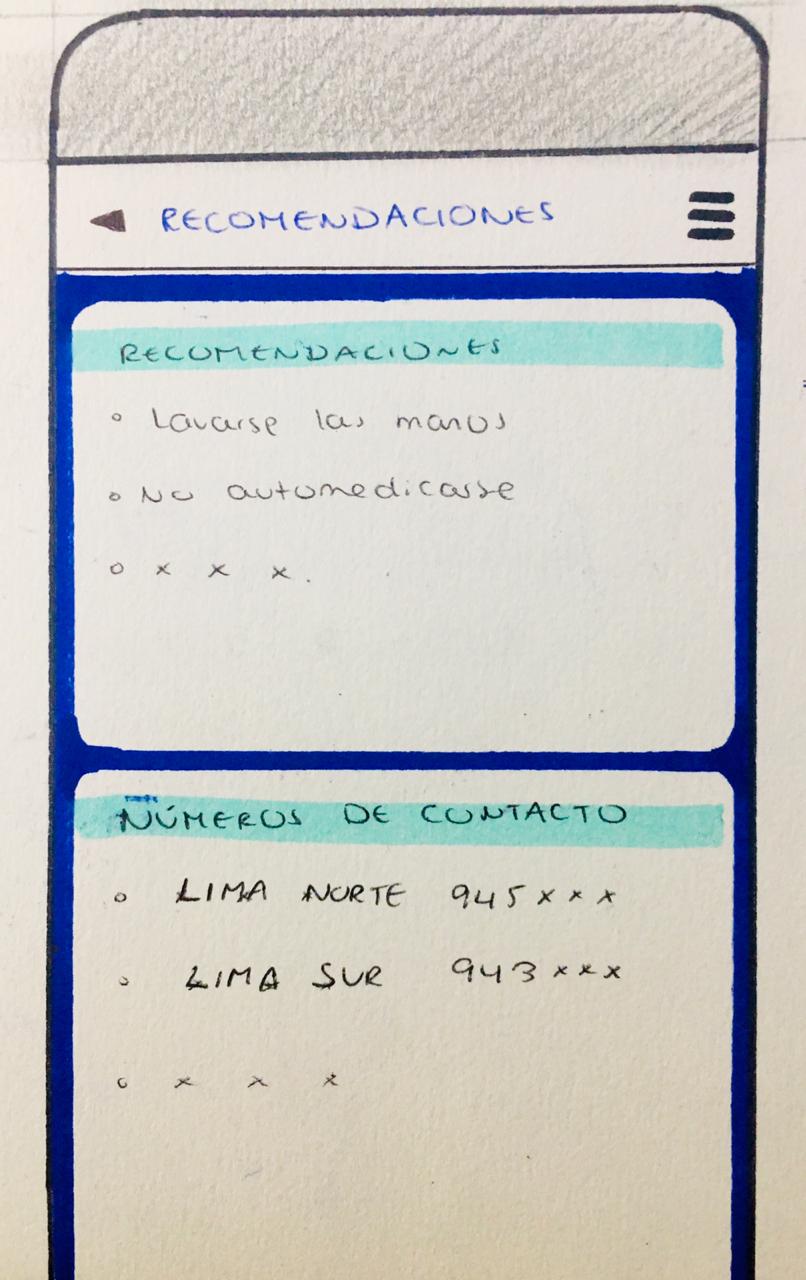 RECOMENDACIONES
RECOMENDACIONES
Lavarse las manos
No automedicarse
x x x.
NÚMEROS DE CONTACTO
LIMA NORTE 945xxx
LIMA SUR 943xxx
x x x